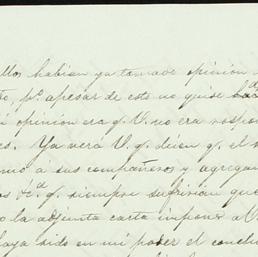 habian ya tomado opinion
pº. apesar de esto no quise
opinion era q. V. no era respon
Ya vera V. q. dicen q. el
á sus compañeros y agregan
q. siempre sufririan que
la adjunta carta impones a V.
haya sido en mi poder el conclu